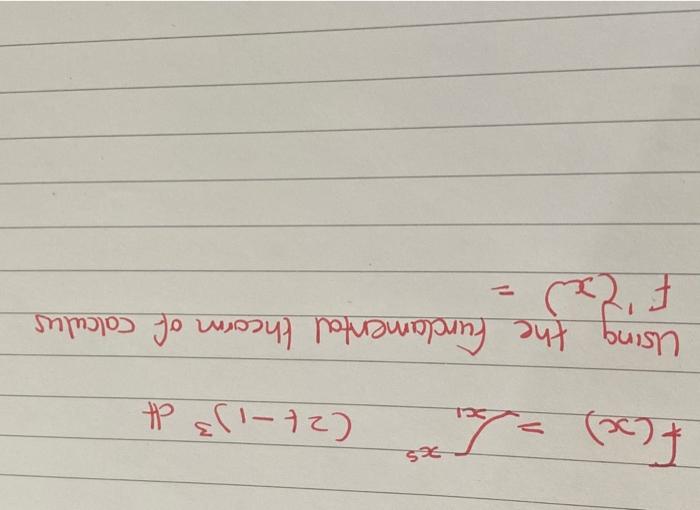 f(x) = ∫_{x^1}^{x^5} (2t-1)^3 dt
Using the fundamental theorm of calculus
f'(x) =